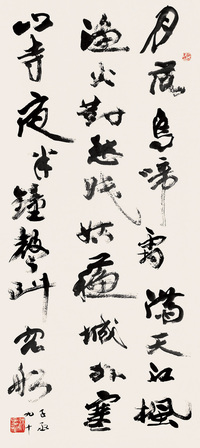 月落烏啼霜滿天江楓
漁火對愁眠姑蘇城外寒
山寺夜半鐘聲到客船
九十